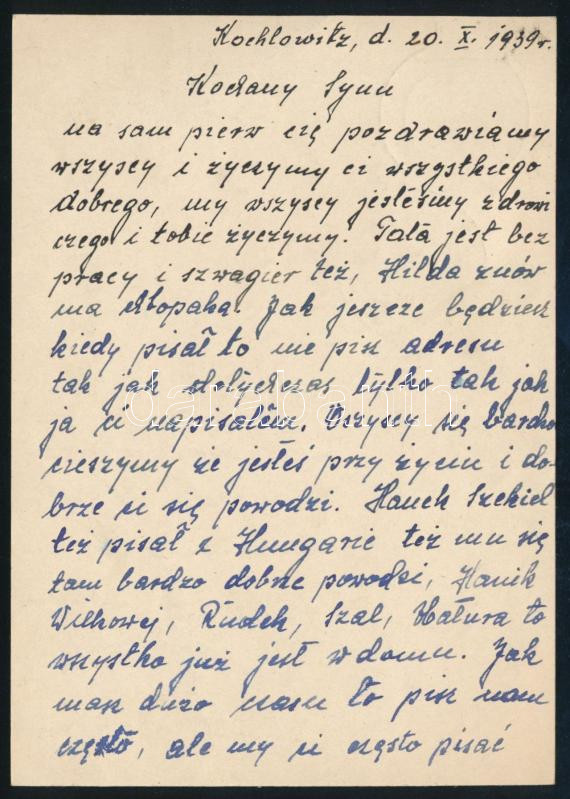 Kochlowitz, d. 20. X. 1939 r.
Kochany Synu
na sam pierw cię pozdrawiamy
wszyscy i życzymy ci wszystkiego
dobrego, my wszyscy jesteśmy zdrowi
czego i tobie życzymy. Tata jest bez
pracy i szwagier też, Hilda znów
ma chłopaka. Jak jeszcze będziesz
kiedy pisał to nie pisz adresu
tak jak dotychczas tylko tak jak
ja ci napisałem. Wszyscy się bardzo
cieszymy że jesteś przy życiu i do-
brze ci się powodzi. Hanek
też pisał z Hungarie też mu się
tam bardzo dobrze powodzi, Hanik
Wilkowej, Rudek, Szal, Hatura to
wszystko już jest w domu. Jak
masz dużo czasu to pisz nam
często, ale my ci często pisać
darabanth